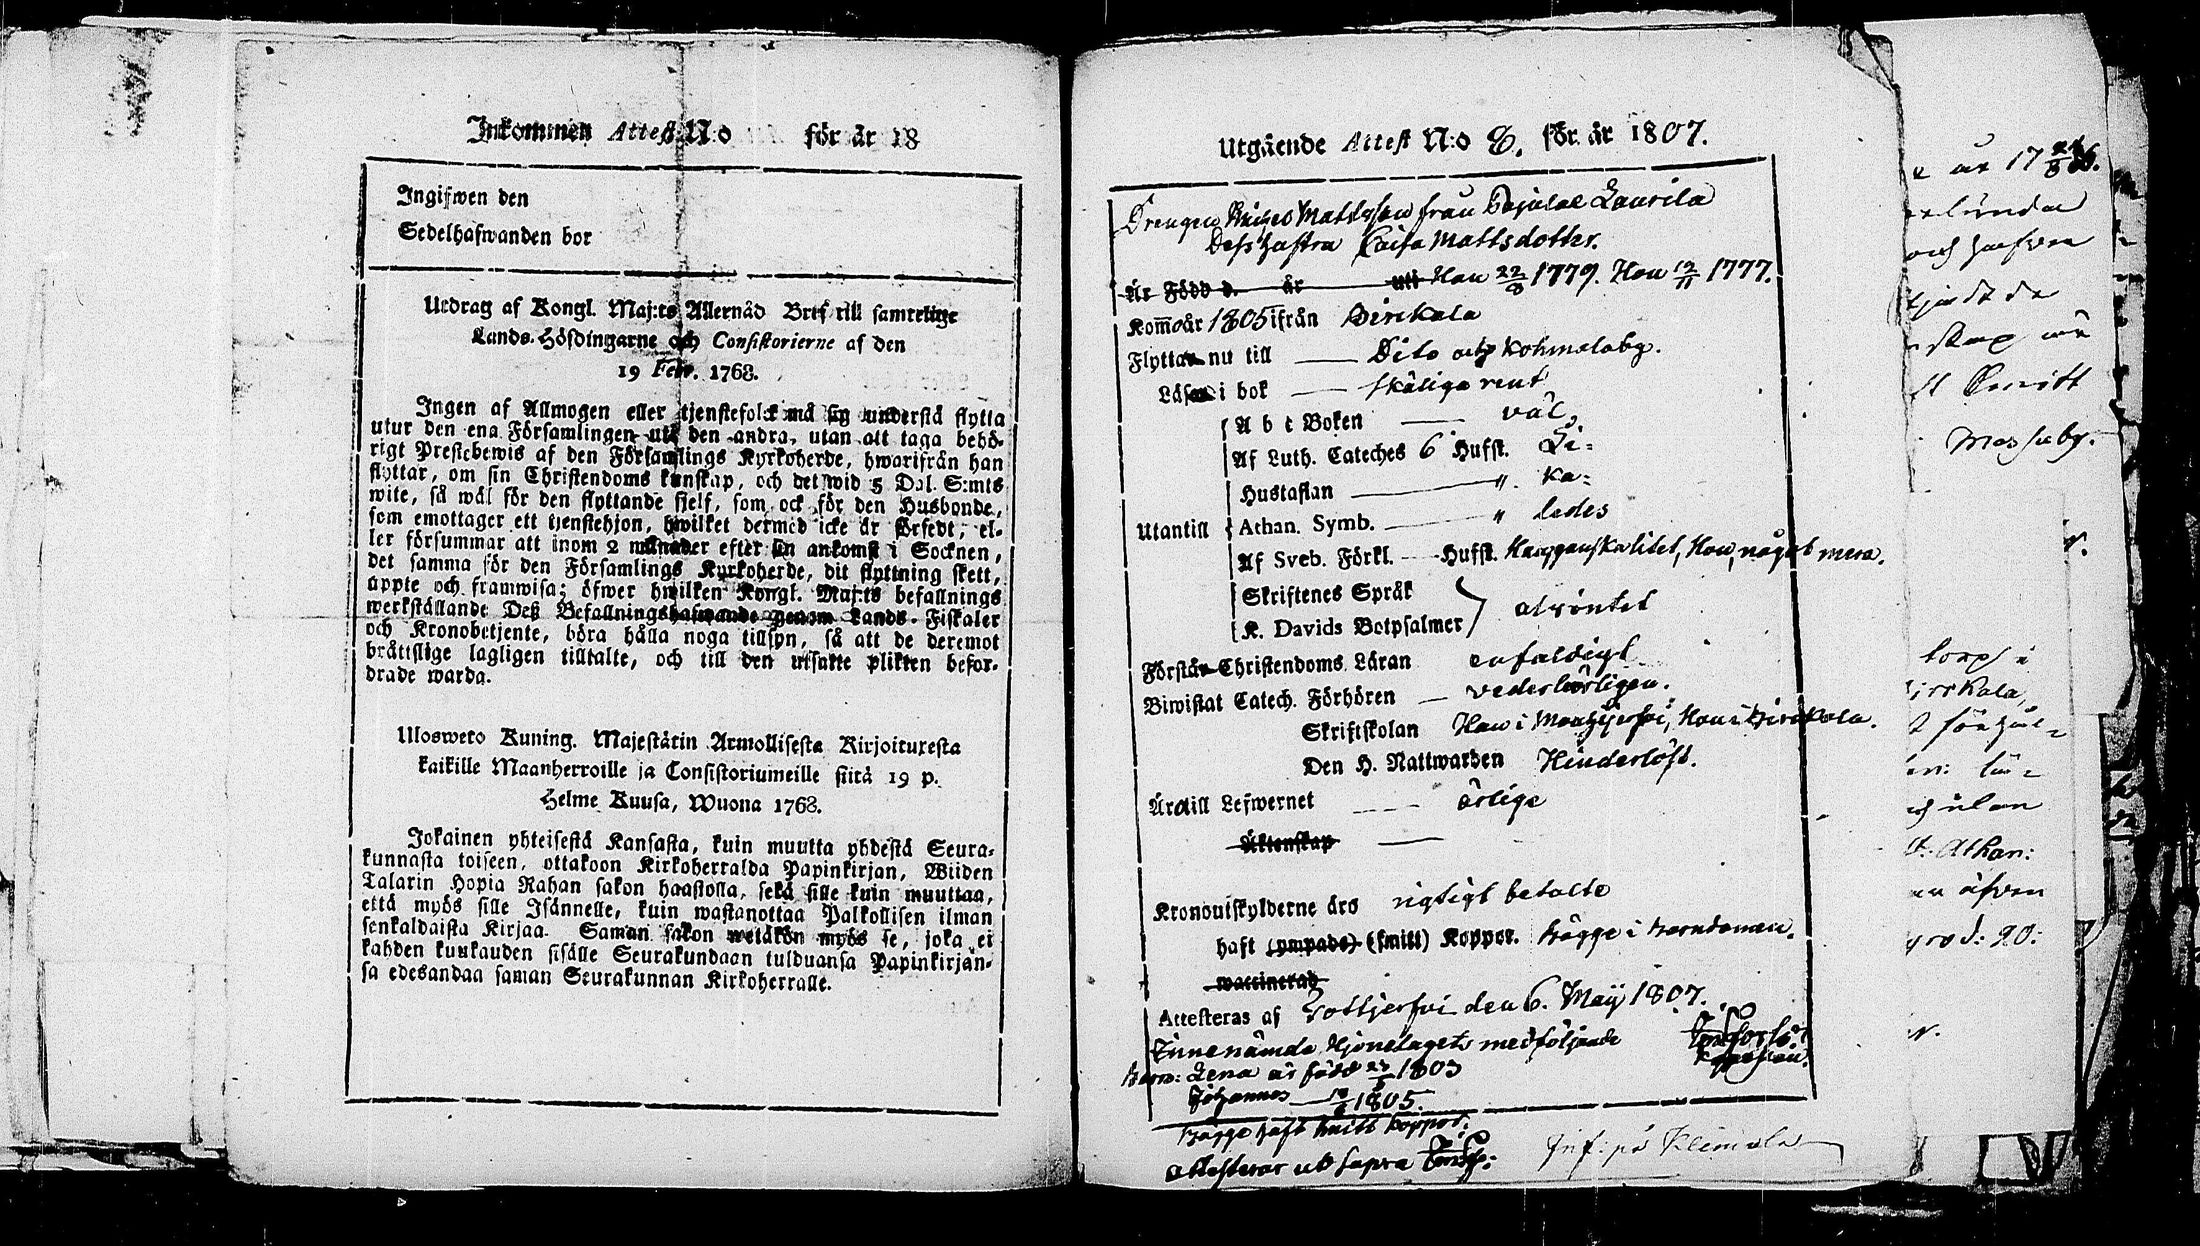 Inkommen Attest N:o för år 18
Ingifwen den
Sedelhafwanden bor
Utdrag af Kongl. Maj:ts Allernåd Bref till samtelige
Lands-Höfdingarne och Consistorierne af den
19 Febr. 1768.
Ingen af Allmogen eller tjenstefolck må sig understå flytta
utur den ena Församlingen uti den andra, utan att taga behö-
rigt Prestebewis af den Församlings Kyrkoherde, hwarifrån han
flyttar, om sin Christendoms kunskap, och det wid 5 Dal. S:mts
wite, så wäl för den flyttande sjelf, som ock för den Husbonde,
som emottager ett tjenstehjon, hwilket dermed icke är försedt, el-
ler försummar att inom 2 månader efter sin ankomst i Socknen,
det samma för den Församlings Kyrkoherde, dit flyttning skett,
uppte och framwisa; öfwer hwilken Kongl. Maj:ts befallnings
werkställande Deß Befallningshafwande genom Lands-Fiskaler
och Kronobetjente, böra hålla noga tillsyn, så att de deremot
bråttslige lagligen tilltalte, och till den utsatte plikten befor-
drade warda.
Ulosweto Kuning. Majestätin Armollisesta Kirjoituxesta
kaikille Maanherroille ja Consistoriumeille siitä 19 p.
Helme Kuusa, Wuona 1768.
Jokainen yhteisestä Kansasta, kuin muutta yhdestä Seura-
kunnasta toiseen, ottakoon Kirkoherralda Papinkirjan, Wiiden
Talarin Hopia Rahan sakon haastolla, sekä sille kuin muuttaa,
että myös sille Isännelle, kuin wastanottaa Palkollisen ilman
senkaldaista Kirjaa. Saman sakon wetäkön myös se, joka ei
kahden kuukauden sisälle Seurakundaan tulduansa Papinkirjan-
sa edesandaa saman Seurakunnan Kirkoherralle.
Utgående Attest N:o 8. för år 1807.
Drengen Mattsson från Laurila
Dess hustru Caisa Mattsdotter.
Är Född d. år uti Han 22/8 1779. Hon 12/11 1777.
Kom̅o år 1805 ifrån Birckala
Flyttar nu till Dito och Kohmalaby.
Läsa i bok skäligen rent
A b c Boken väl
Af Luth. Cateches 6 Hufst. Li-
Hustaflan " ka-
Utantill Athan. Symb. " ledes
Af Sveb. Förkl. Hufst. Han ganska litet, Hon något mera.
Skriftenes Språk
K. Davids Botpsalmer
Förstår Christendoms Läran enfaldigt
Biwistat Catech. Förhören vederbörligen.
Skriftskolan Han i Hon i Birckala.
Den H. Nattwarden Hinderlöst.
Äro till Lefwernet ärlige
Äktenskap
Kronoutskylderne äro rigtigt betalte
haft (ympade) (smitt) Koppor. bägge i barndomen.
waccinerad
Attesteras af den 6. Maij 1807.
medföljande
barn: Lena är född 1803
Johannes 1805.
bägge haft smitt koppor.
attesterar ut supra
Inf: på Kleimola
år 17
och hafver
Messuby.
torp i
Birckala,
och utan
Athan:
äfven